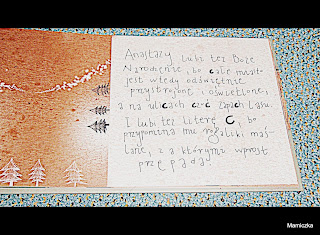 Anastazy lubi też Boże
Narodzenie, bo całe miasto
jest wtedy odświętnie
przystrojone i oświetlone,
a na ulicach czuć zapach lasu.
I lubi też literę C, bo
przypomina mu rogaliki maś
lane, za którymi wprost
przepada
Mamiczka